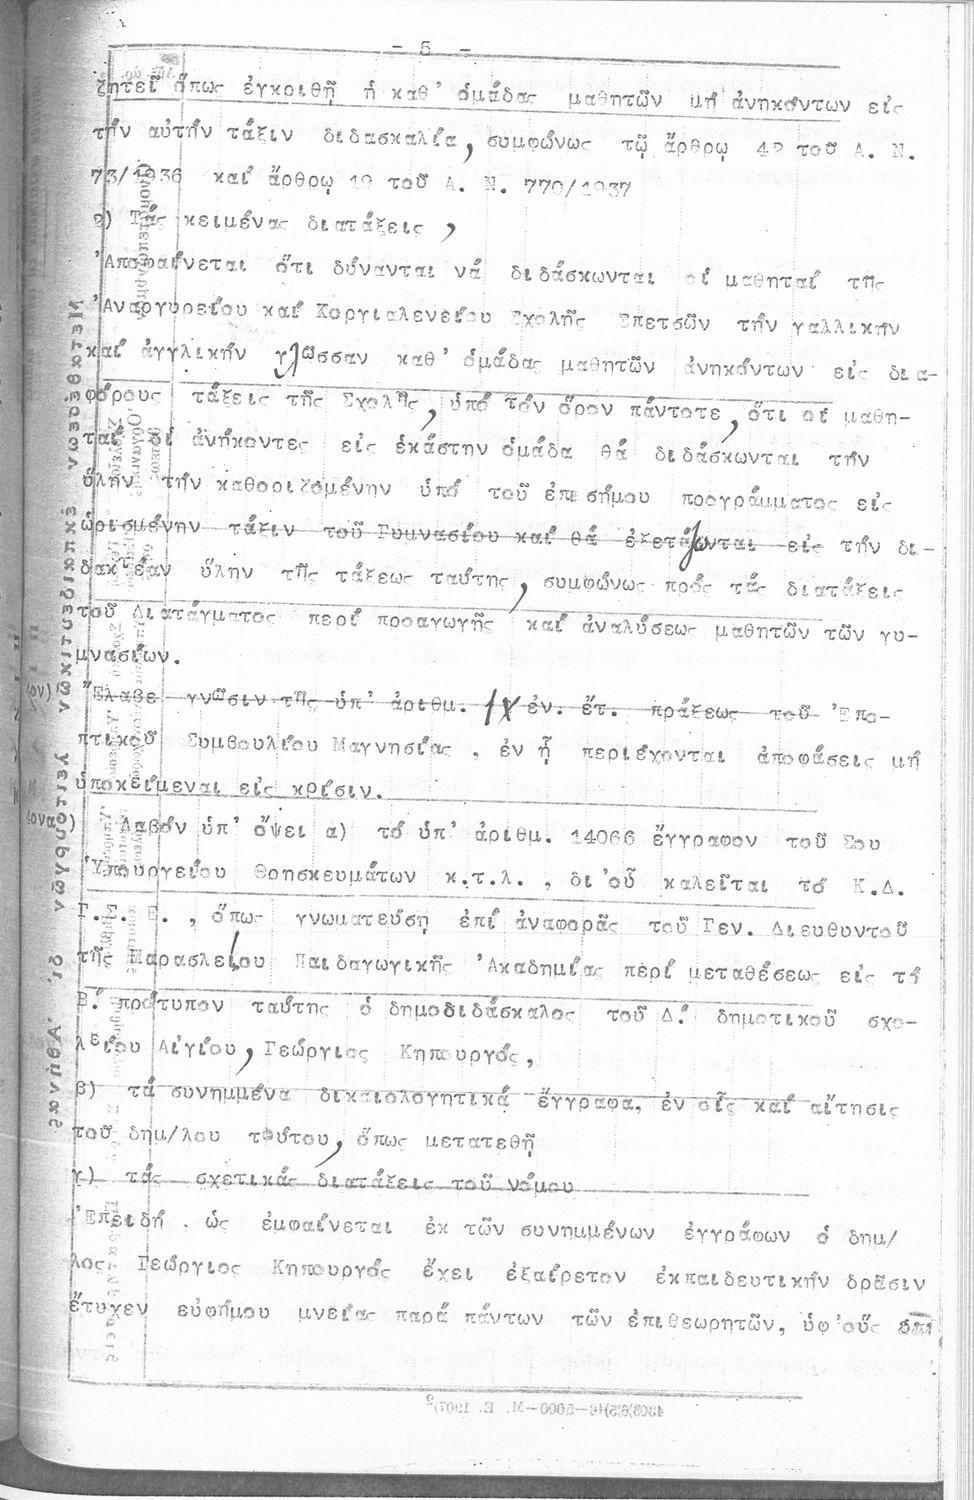 - 5 -
ζητεῖ ὅπως ἐγκριθῇ ἡ καθ' ὁμάδας μαθητῶν μή ἀνηκόντων εἰς
τήν αὐτήν τάξιν διδασκαλία, συμφώνως τῷ ἄρθρῳ 42 τοῦ Α. Ν.
73/1936 καί ἄρθρῳ 19 τοῦ Α. Ν. 770/1937
2) Τάς κειμένας διατάξεις,
Ἀποφαίνεται ὅτι δύνανται νά διδάσκωνται οἱ μαθηταί τῆς
Ἀναργυρείου καί Κοργιαλενείου Σχολῆς Σπετσῶν τήν γαλλικήν
καί ἀγγλικήν γλῶσσαν καθ' ὁμάδας μαθητῶν ἀνηκόντων εἰς δια-
φόρους τάξεις τῆς Σχολῆς, ὑπό τόν ὅρον πάντοτε, ὅτι οἱ μαθη-
ταί οἱ ἀνήκοντες εἰς ἑκάστην ὁμάδα θά διδάσκωνται τήν
ὕλην τήν καθοριζομένην ὑπό τοῦ ἐπισήμου προγράμματος εἰς
ὡρισμένην τάξιν τοῦ Γυμνασίου καί θά ἐξετάζωνται εἰς τήν δι-
δακτέαν ὕλην τῆς τάξεως ταύτης, συμφώνως πρός τάς διατάξεις
τοῦ Διατάγματος περί προαγωγῆς καί ἀναλύσεως μαθητῶν τῶν γυ-
μνασίων.
Ἔλαβε γνῶσιν τῆς ὑπ' ἀριθμ. ἐν. ἔτ. πράξεως τοῦ Ἐπο-
πτικοῦ Συμβουλίου Μαγνησίας, ἐν ᾗ περιέχονται ἀποφάσεις μή
ὑποκείμεναι εἰς κρίσιν.
Λαβόν ὑπ' ὄψει α) τό ὑπ' ἀριθμ. 14066 ἔγγραφον τοῦ Σου
Ὑπουργείου Θρησκευμάτων κ.τ.λ., δι' οὗ καλεῖται τό Κ.Δ.
Γ.Σ. Ε., ὅπως γνωματεύσῃ ἐπί ἀναφορᾶς τοῦ Γεν. Διευθυντοῦ
τῆς Μαρασλείου Παιδαγωγικῆς Ἀκαδημίας περί μεταθέσεως εἰς τό
Β.' πρότυπον ταύτης ὁ δημοδιδάσκαλος τοῦ Δ.' δημοτικοῦ σχο-
λείου Αἰγίου, Γεώργιος Κηπουργός,
β) τά συνημμένα δικαιολογητικά ἔγγραφα, ἐν οἷς καί αἴτησις
τοῦ δημ/λου τούτου, ὅπως μετατεθῇ
γ) τάς σχετικάς διατάξεις τοῦ νόμου
Ἐπειδή, ὡς ἐμφαίνεται ἐκ τῶν συνημμένων ἐγγράφων ὁ δημ/
λος Γεώργιος Κηπουργός ἔχει ἐξαίρετον ἐκπαιδευτικήν δρᾶσιν
ἔτυχεν εὐφήμου μνείας παρά πάντων τῶν ἐπιθεωρητῶν, ὑφ' οὕς